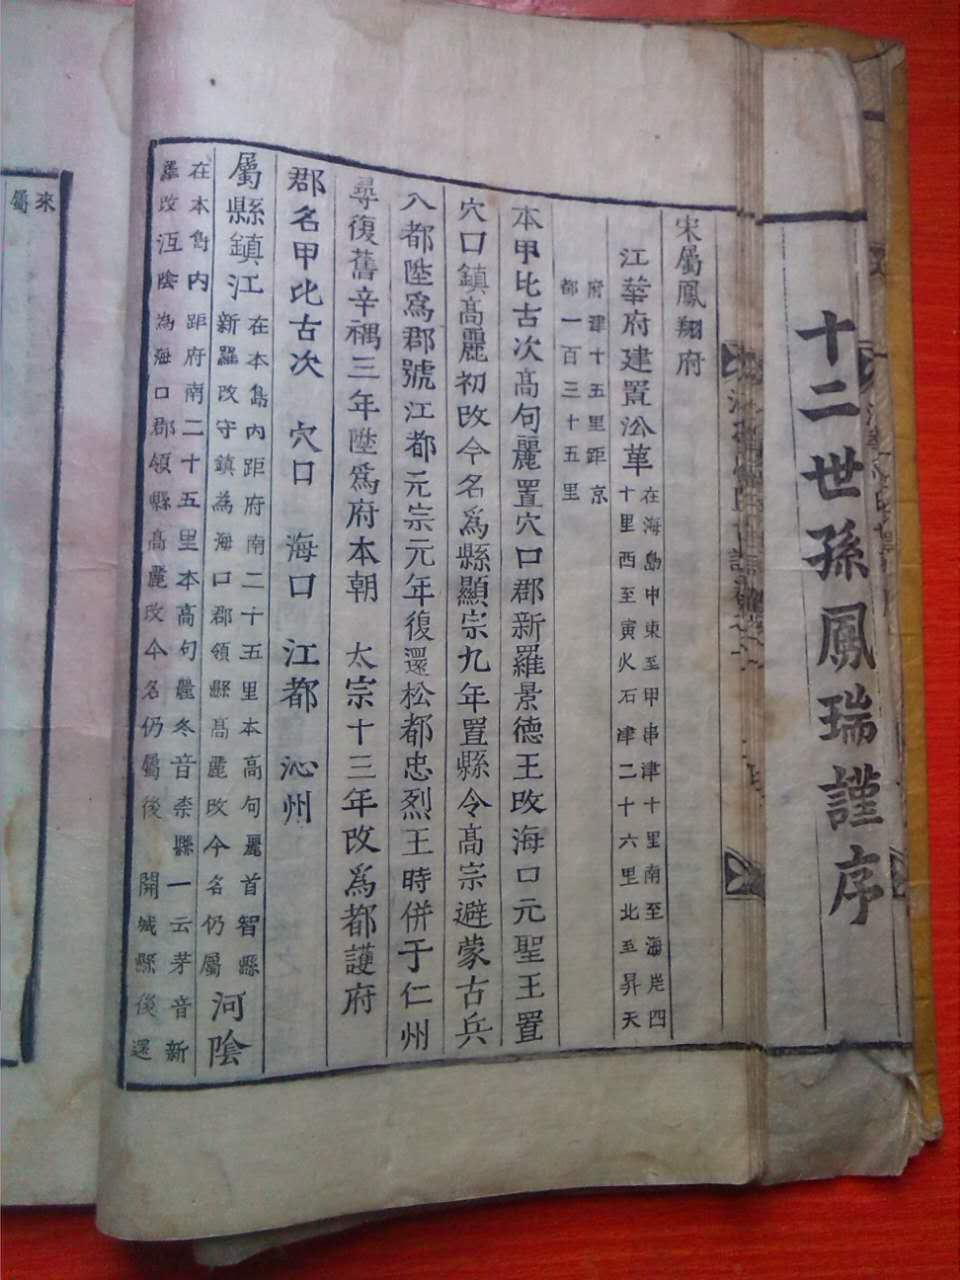 十二世孫鳳瑞謹序
宋屬鳳翔府
江華府建置㳂革在海島中東至甲串津十里南至海岸四
十里西至寅火石津二十六里北至昇天
府津十五里距京
都一百三十五里
本甲比古次高句麗置穴口郡新羅景德王改海口元聖王置
穴口鎮高麗初改今名爲縣顯宗九年置縣令高宗避蒙古兵
入都陞爲郡號江都元宗元年復還松都忠烈王時併于仁州
尋復舊辛禑三年陞爲府本朝 太宗十三年改爲都護府
郡名甲比古次 穴口 海口 江都 沁州
屬縣鎮江在本島內距府南二十五里本高句麗首智縣
新羅改守鎮為海口郡領縣高麗改今名仍屬河陰
在本島內距府南二十五里本高句麗冬音柰縣一云芽音新
羅改沍陰為海口郡領縣高麗改今名仍屬後 開城縣後還
來
屬